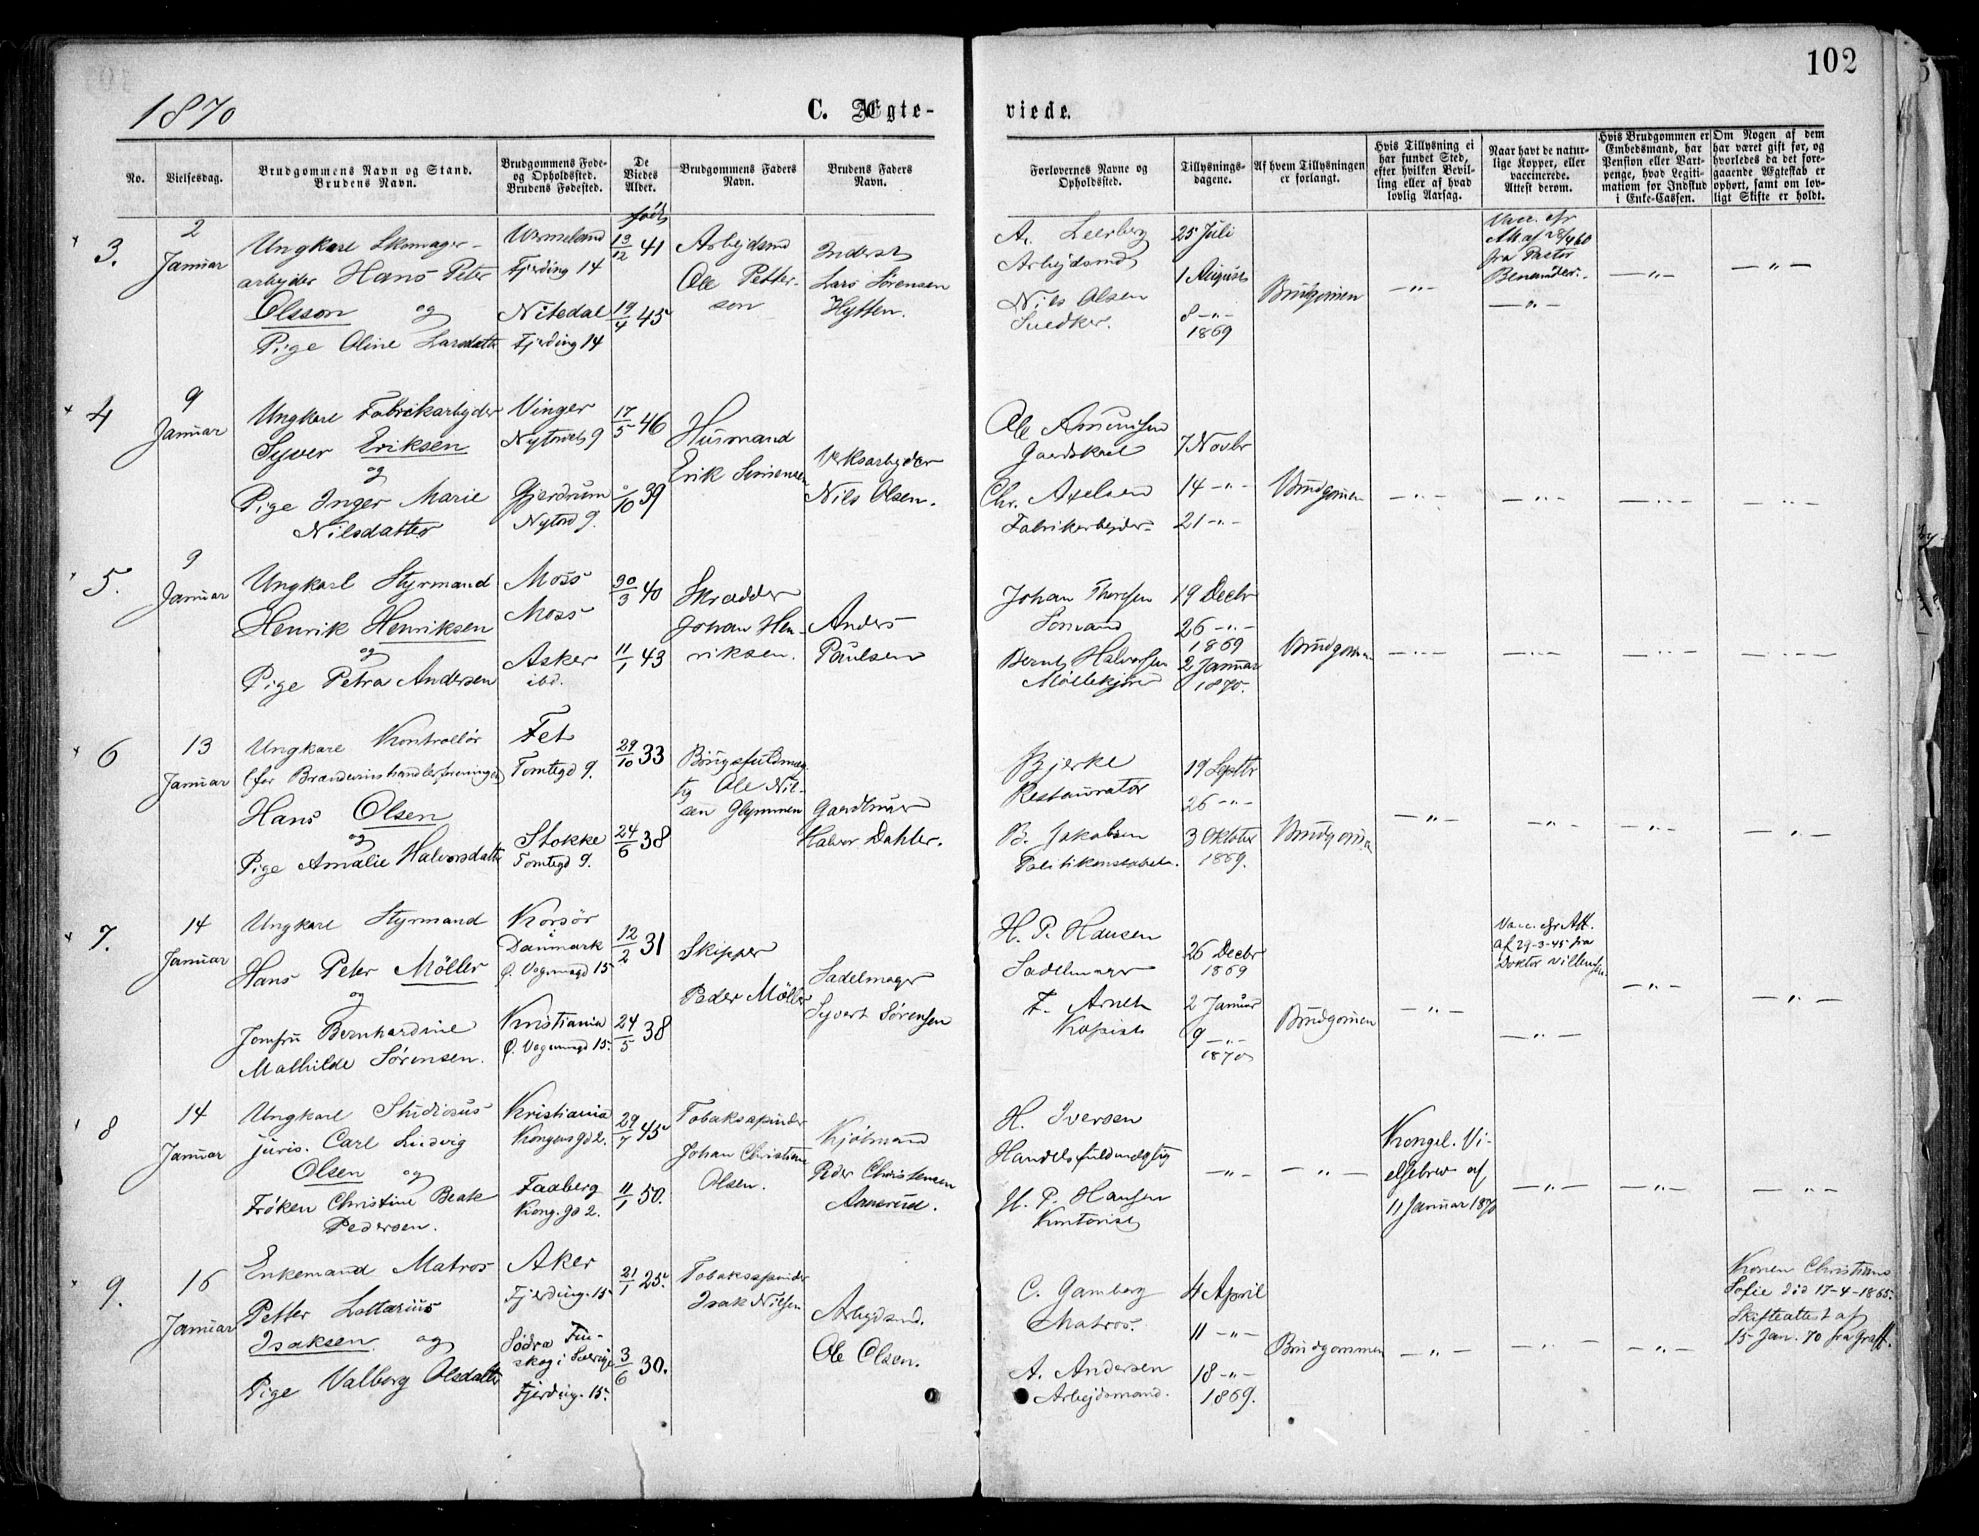 102
1870
C. Ægte-
viede.
No.
Vielsesdag.
Brudgommens Navn og Stand.
Brudens Navn.
Brudgommens Føde-
og Opholdssted.
Brudens Fødested.
De
Viedes
Alder.
Brudgommens Faders
Navn.
Brudens Faders
Navn.
Forlovernes Navne og
Opholdssted.
Tillysnings-
dagene.
Af hvem Tillysningen
er forlangt.
Hvis Tillysning ei
har fundet Sted,
efter hvilken Bevil-
ling eller af hvad
lovlig Aarsag.
Naar havt de natur-
lige Kopper, eller
vaccinerede.
Attest derom.
Hvis Brudgommen er
Embedsmand, har
Pension eller Vart-
penge, hvad Legiti-
mation for Indskud
i Enke-Cassen.
Om Nogen af dem
har været gift før, og
hvorledes da det fore-
gaaende Ægteskab er
ophørt, samt om lov-
ligt Skifte er holdt.
født
3.
2
Januar
Ungkarl Skomager-
arbeyder Hans Peter
Olsson og
Pige Oline Larsdatter
Wermeland
Fjerding 14
Nitedal
Fjerding 14
13/12 41
19/4 45
Arbejdsmd
Ole Petter-
sen
Inderst
Lars Sørensen
Hytten.
A. Leerberg
Arbejdsmd
Nils Olsen
Snedker.
25 Juli
1 August
8 -"-
1869
Brudgommen
-"-
Vacc. efr
Att af 28/4 60
fra Pastor
Benander.
-"-
-"-
-"-
4
9
Januar
Ungkarl Fabrikarbejder
Syver Eriksen
og
Pige Inger Marie
Nilsdatter
Vinger
Nytorvet 9
Gjerdrum
Nytorv 9.
17/5 46
/10 39
Husmand
Erik Simensen
Verksarbejder
Nils Olsen.
Ole Amundsen
Gaardskarl
Chr. Axelsen
Fabrikarbejder
7 Novbr
14 -"-
21 -"-
Brudgommen
-"-
-"-
-"-
-"-
5.
9
Januar
Ungkarl Styrmand
Henrik Henriksen
og
Pige Petra Andersen
Moss
Moss
Asker
ibd.
30/3 40
11/1 43
Skrædder
Johan Hen-
riksen.
Anders
Paulsen
Johan Thoresen
Sømand
Bernt Halvorsen
Møllekjører
19 Decbr
26 -"-
1869
2 Januar
1870.
Brudgommen
-"-
-"-
-"-
-"-
6
13
Januar
Ungkarl Kontrollør
(for Brændevinshandlerforeningen)
Hans Olsen
og
Pige Amalie Halvorsdatter
Fet
Tomtegd 9.
Stokke
Tomtegd 9.
29/10 33
24/6 38
Brugsfuldmæg-
tig Ole Nil-
sen Glommen
Gaardbruger
Halvor Dahler.
Bjerke
Restauratør
B. Jakobsen
Politikonstabel.
19 Septbr
26 -"-
3 Oktober
1869.
Brudgommen
-"-
-"-
-"-
-"-
7.
14
Januar
Ungkarl Styrmand
Hans Peter Møller
og
Jomfru Bernhardine
Mathilde Sørensen.
Korsør
i
Danmark
Ø. Vognmagd 15
Kristiania
Ø. Vognmagd 15.
12/2 31
24/5 38
Skipper
Peder Møller
Sadelmager
Syvert Sørensen
H. P. Hansen
Sadelmager
F. Arnet
Kopist
26 Decbr
1869
2 Januar
9 -"-
1870
Brudgommen
-"-
Vacc. efr Att.
af 29-3-45 fra
Doktor
-"-
-"-
-"-
8
14
Januar
Ungkarl Studiosus
juris. Carl Ludvig
Olsen og
Frøken Christine Beate
Pedersen.
Kristiania
Kongens gd 2.
Faaberg
Kong. gd 2.
29/7 45
11/1 50.
Tobaksspinder
Johan Christian
Olsen.
Kjøbmand
Peder Christensen
H. Iversen
Handelsfuldmægtig
H. P. Hansen
Kontorist
-"-
-"-
Kongel. Vi-
elsebrev af
11 Januar 1870
-"-
-"-
-"-
9.
16
Januar
Enkemand Matros
Petter Lottarius
Isaksen og
Pige Valborg Olsdatter
Aker
Fjerding. 15
Södra Fin-
skog i Sverige
Fjerding. 15.
21/1 25.
3/6 30.
Tobaksspinder
Isak Nilsen
Arbejdsmd.
Ole Olsen.
C. Gamberg
Matros.
A. Andersen
Arbejdsmand.
4 April
11 -"-
18 -"-
1869.
Brudgommen
-"-
-"-
-"-
Konen Christiane
Sofie død 17-4-1865.
Skifteattest af
15 Jan. 70 fra Graff.